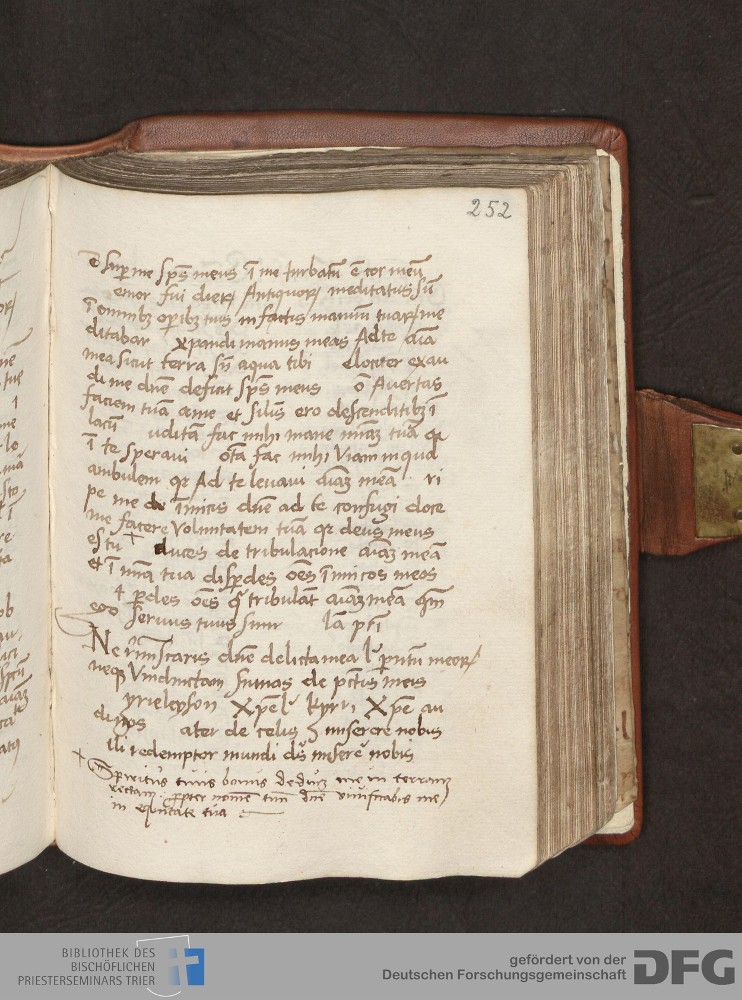 252
sup me sps meus i me turbatu e cor meu
emor fui dierz Antiquorz meditatus su
i omnibz opibz tuis in factis manuu tuarz me
ditabar xpandi manus meas Ad te aia
mea sicut terra sn aqua tibi elociter exau
di me dne deficit sps meus o Auertas
faciem tua ame et silis ero descenditibz i
lacu udita fac mihi mane miaz tua qr
i te speraui ota fac mihi Viam in qua
ambulem qr Ad te leuaui aiaz mea ri
pe me de inimicis dne ad te confugi doce
me facere Voluntatem tua qr deus meus
es tu + duces de tribulacione aiaz mea
et i mia tua disperdes oes inimicos meos
t pdes oes q tribulat aiaz mea qm
ego seruus tuus sum la pri
Ne reminiscaris dne delicta mea l parentu meorz
neqz Vindictam sumas de pctis meis
yrieleyson Xpel kyri Xpe au
di nos ater de celis miserere nobis
ili redemptor mundi ds misere nobis
+ Spiritus tuus bonus deducz me in terram
rectam ppter nomen tuu dne viuificabis me
in equitate tua
BIBLIOTHEK DES
BISCHÖFLICHEN
PRIESTERSEMINARS TRIER
gefördert von der
Deutschen Forschungsgemeinschaft
DFG